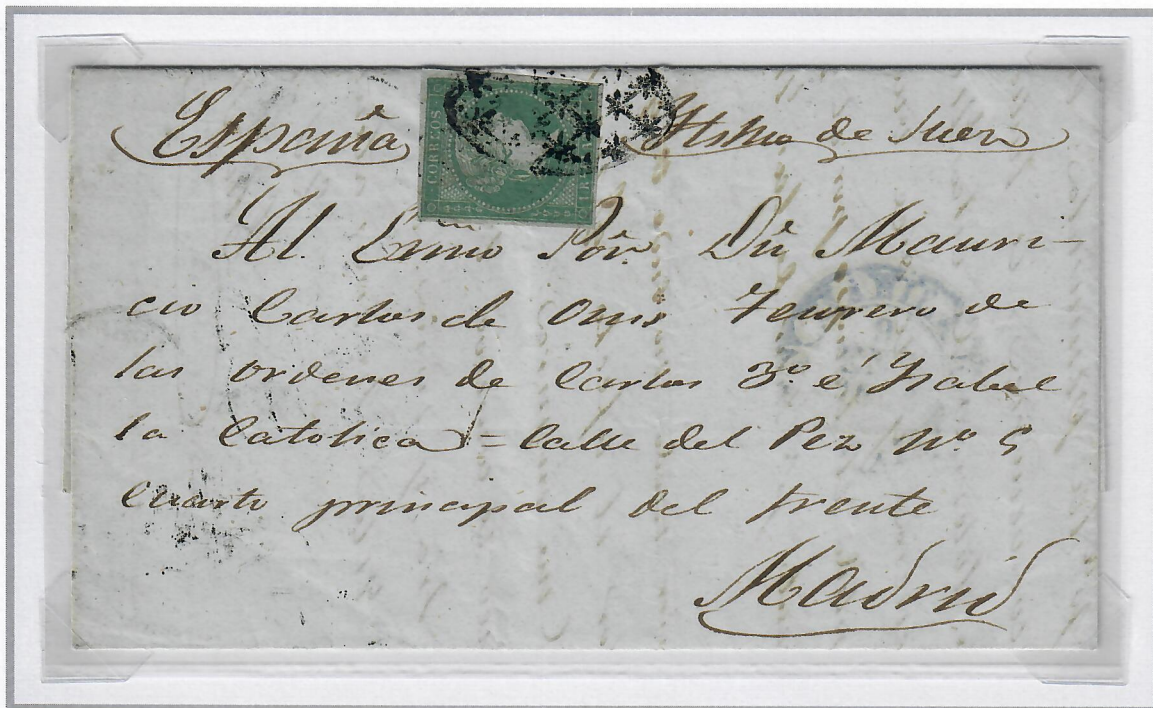 España
CORREOS
Ystmo de Suez
Al Exmo Sor. Dn Mauri-
cio Carlos de Onis Tesorero de
las ordenes de Carlos 3º é Ysabel
la Catolica = Calle del Pez nº 5
Cuarto principal del frente
Madrid